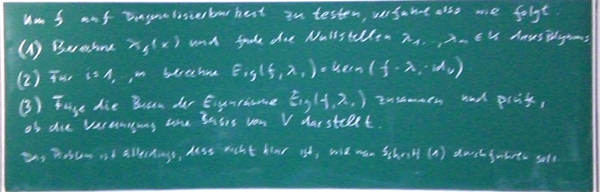 Um f auf Diagonalisierbarkeit zu testen, verfahre also wie folgt:
(1) Berechne χf(x) und finde die Nullstellen λ1, .., λm ∈ K dieses Polynoms
(2) Für i=1, .., m berechne Eig(f, λi) = Kern(f - λi · idV)
(3) Füge die Basen der Eigenräume Eig(f, λi) zusammen und prüfe,
ob die Vereinigung eine Basis von V darstellt.
Das Problem ist allerdings, dass nicht klar ist, wie man Schritt (1) durchführen soll.